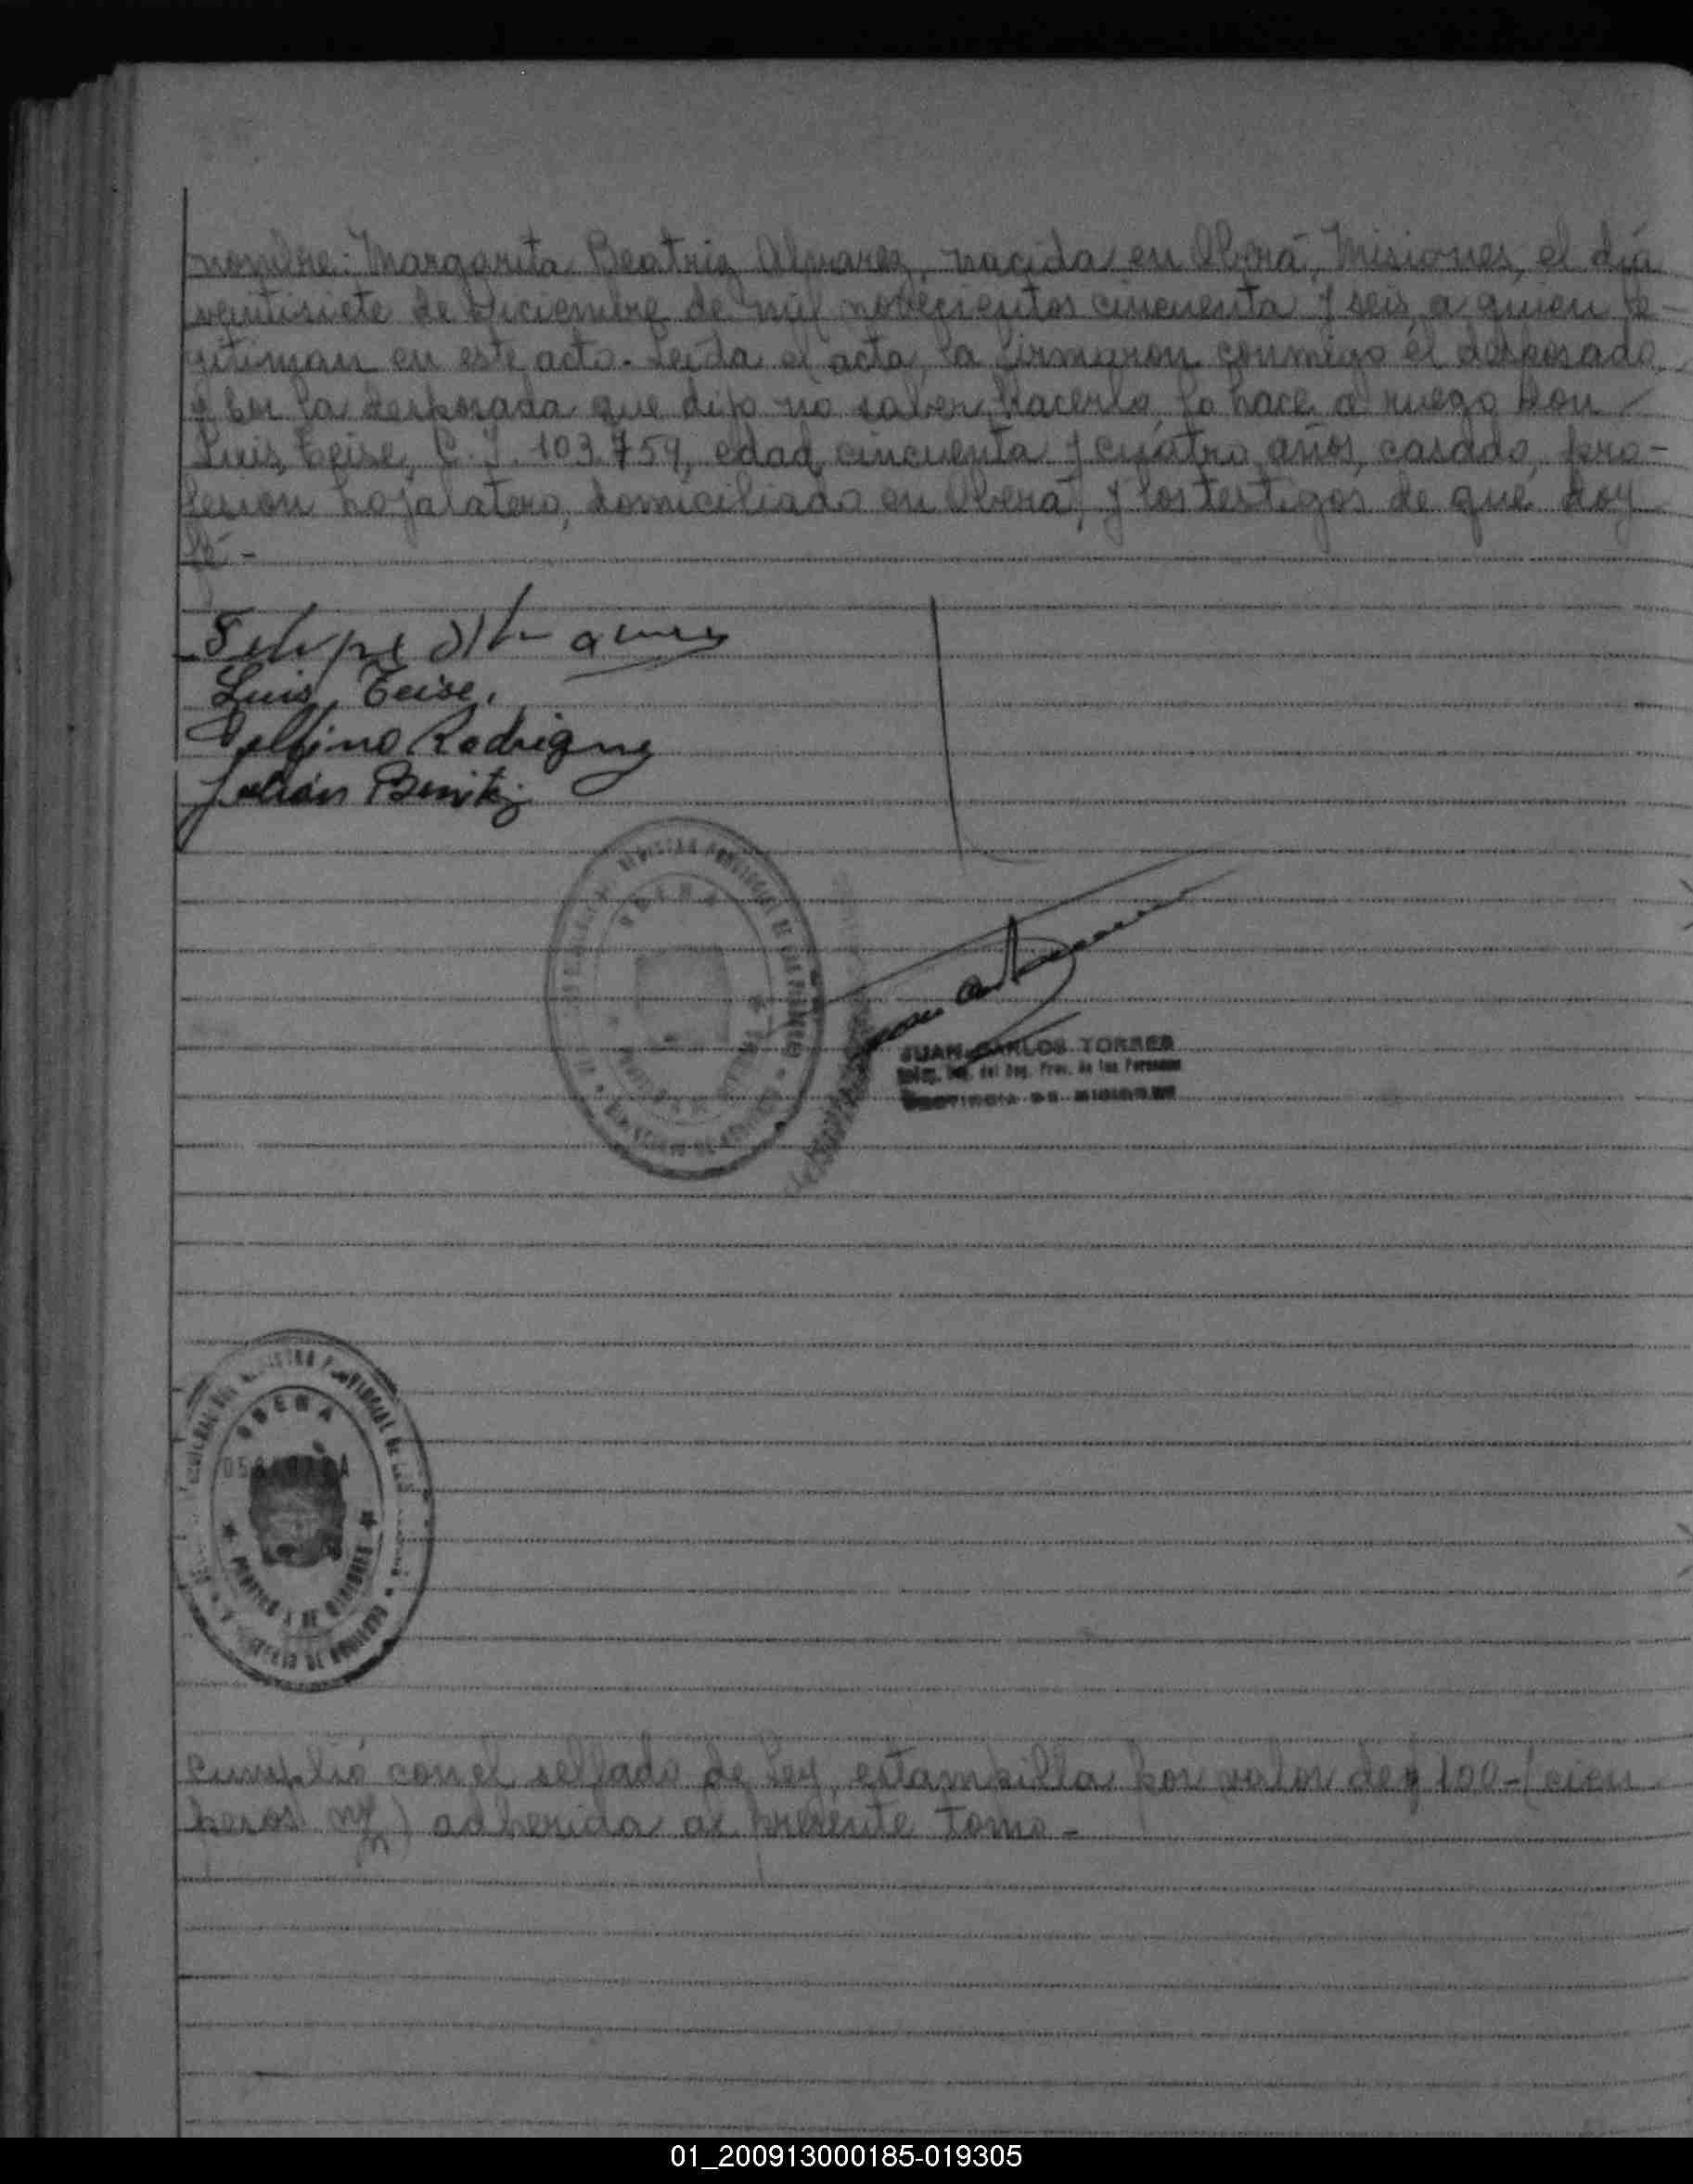 nombre: Margarita Beatriz Alvarez, nacida en Oberá, Misiones, el día
veintisiete de diciembre de mil novecientos cincuenta y seis, a quien le-
gitiman en este acto.- Leída el acta, la firmaron conmigo el desposado,
y por la desposada que dijo no saber hacerlo, lo hace a ruego Don
Luis Teise, C.I. 103.759, edad cincuenta y cuatro años, casado, pro-
fesión hojalatero, domiciliado en Oberá, y los testigos de que doy
fé.-
Luis Teise.
Delfino Rodriguez
Julián Benitez
OBERA
JUAN CARLOS TORRES
del Reg. Prov. de las Personas
PROVINCIA DE MISIONES
REGISTRO PROVINCIAL DE LAS
OBERA
MISIONES
Cumplió con el sellado de Ley, estampilla por valor de $ 100.-(cien
pesos m/n) adherida al presente tomo.-
01_200913000185-019305